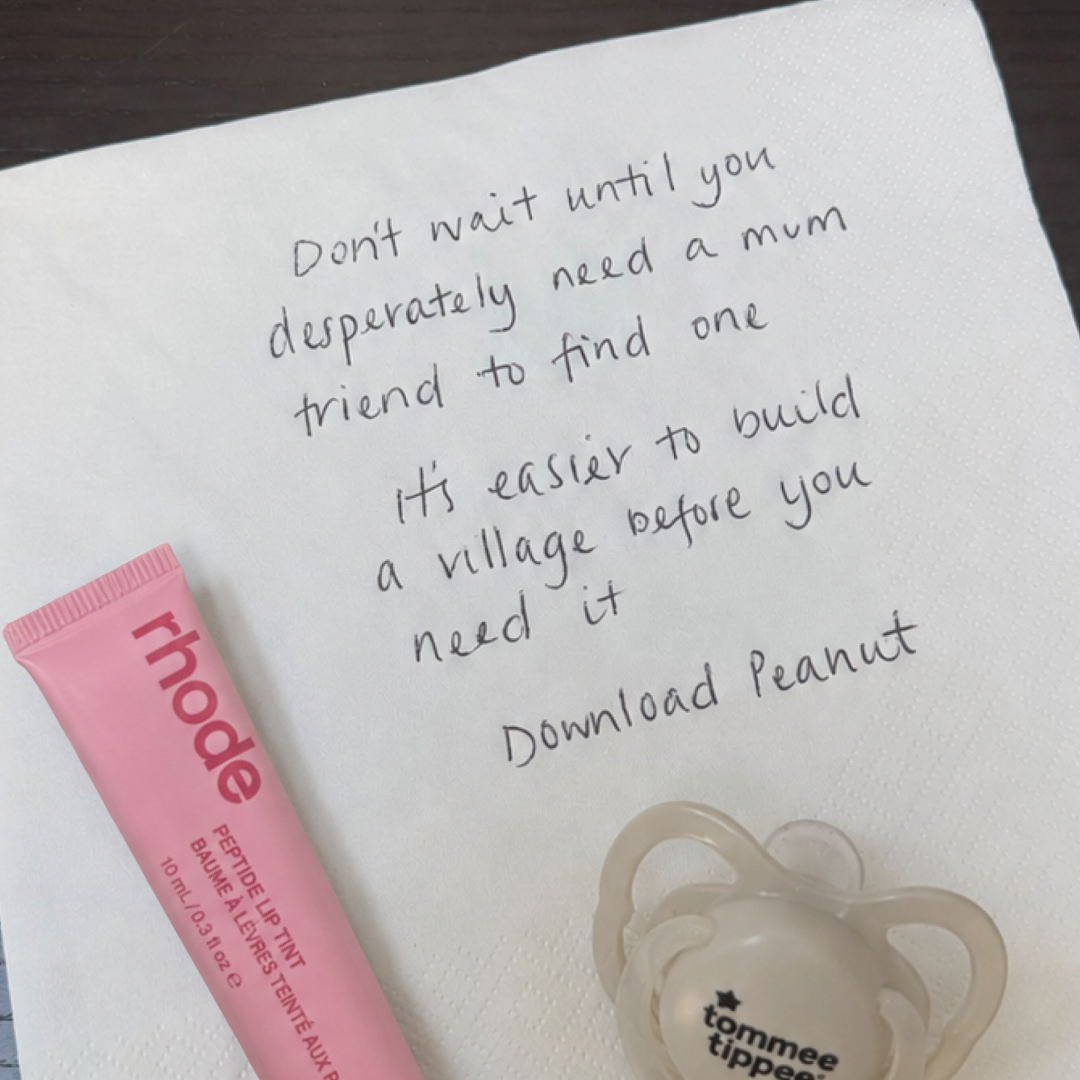 Don't wait until you
desperately need a mum
friend to find one
It's easier to build
a village before you
need it
Download Peanut
rhode
PEPTIDE LIP TINT
BAUME À LÈVRES TEINTÉ AUX
10 mL / 0.3 fl oz e
tommee
tippee